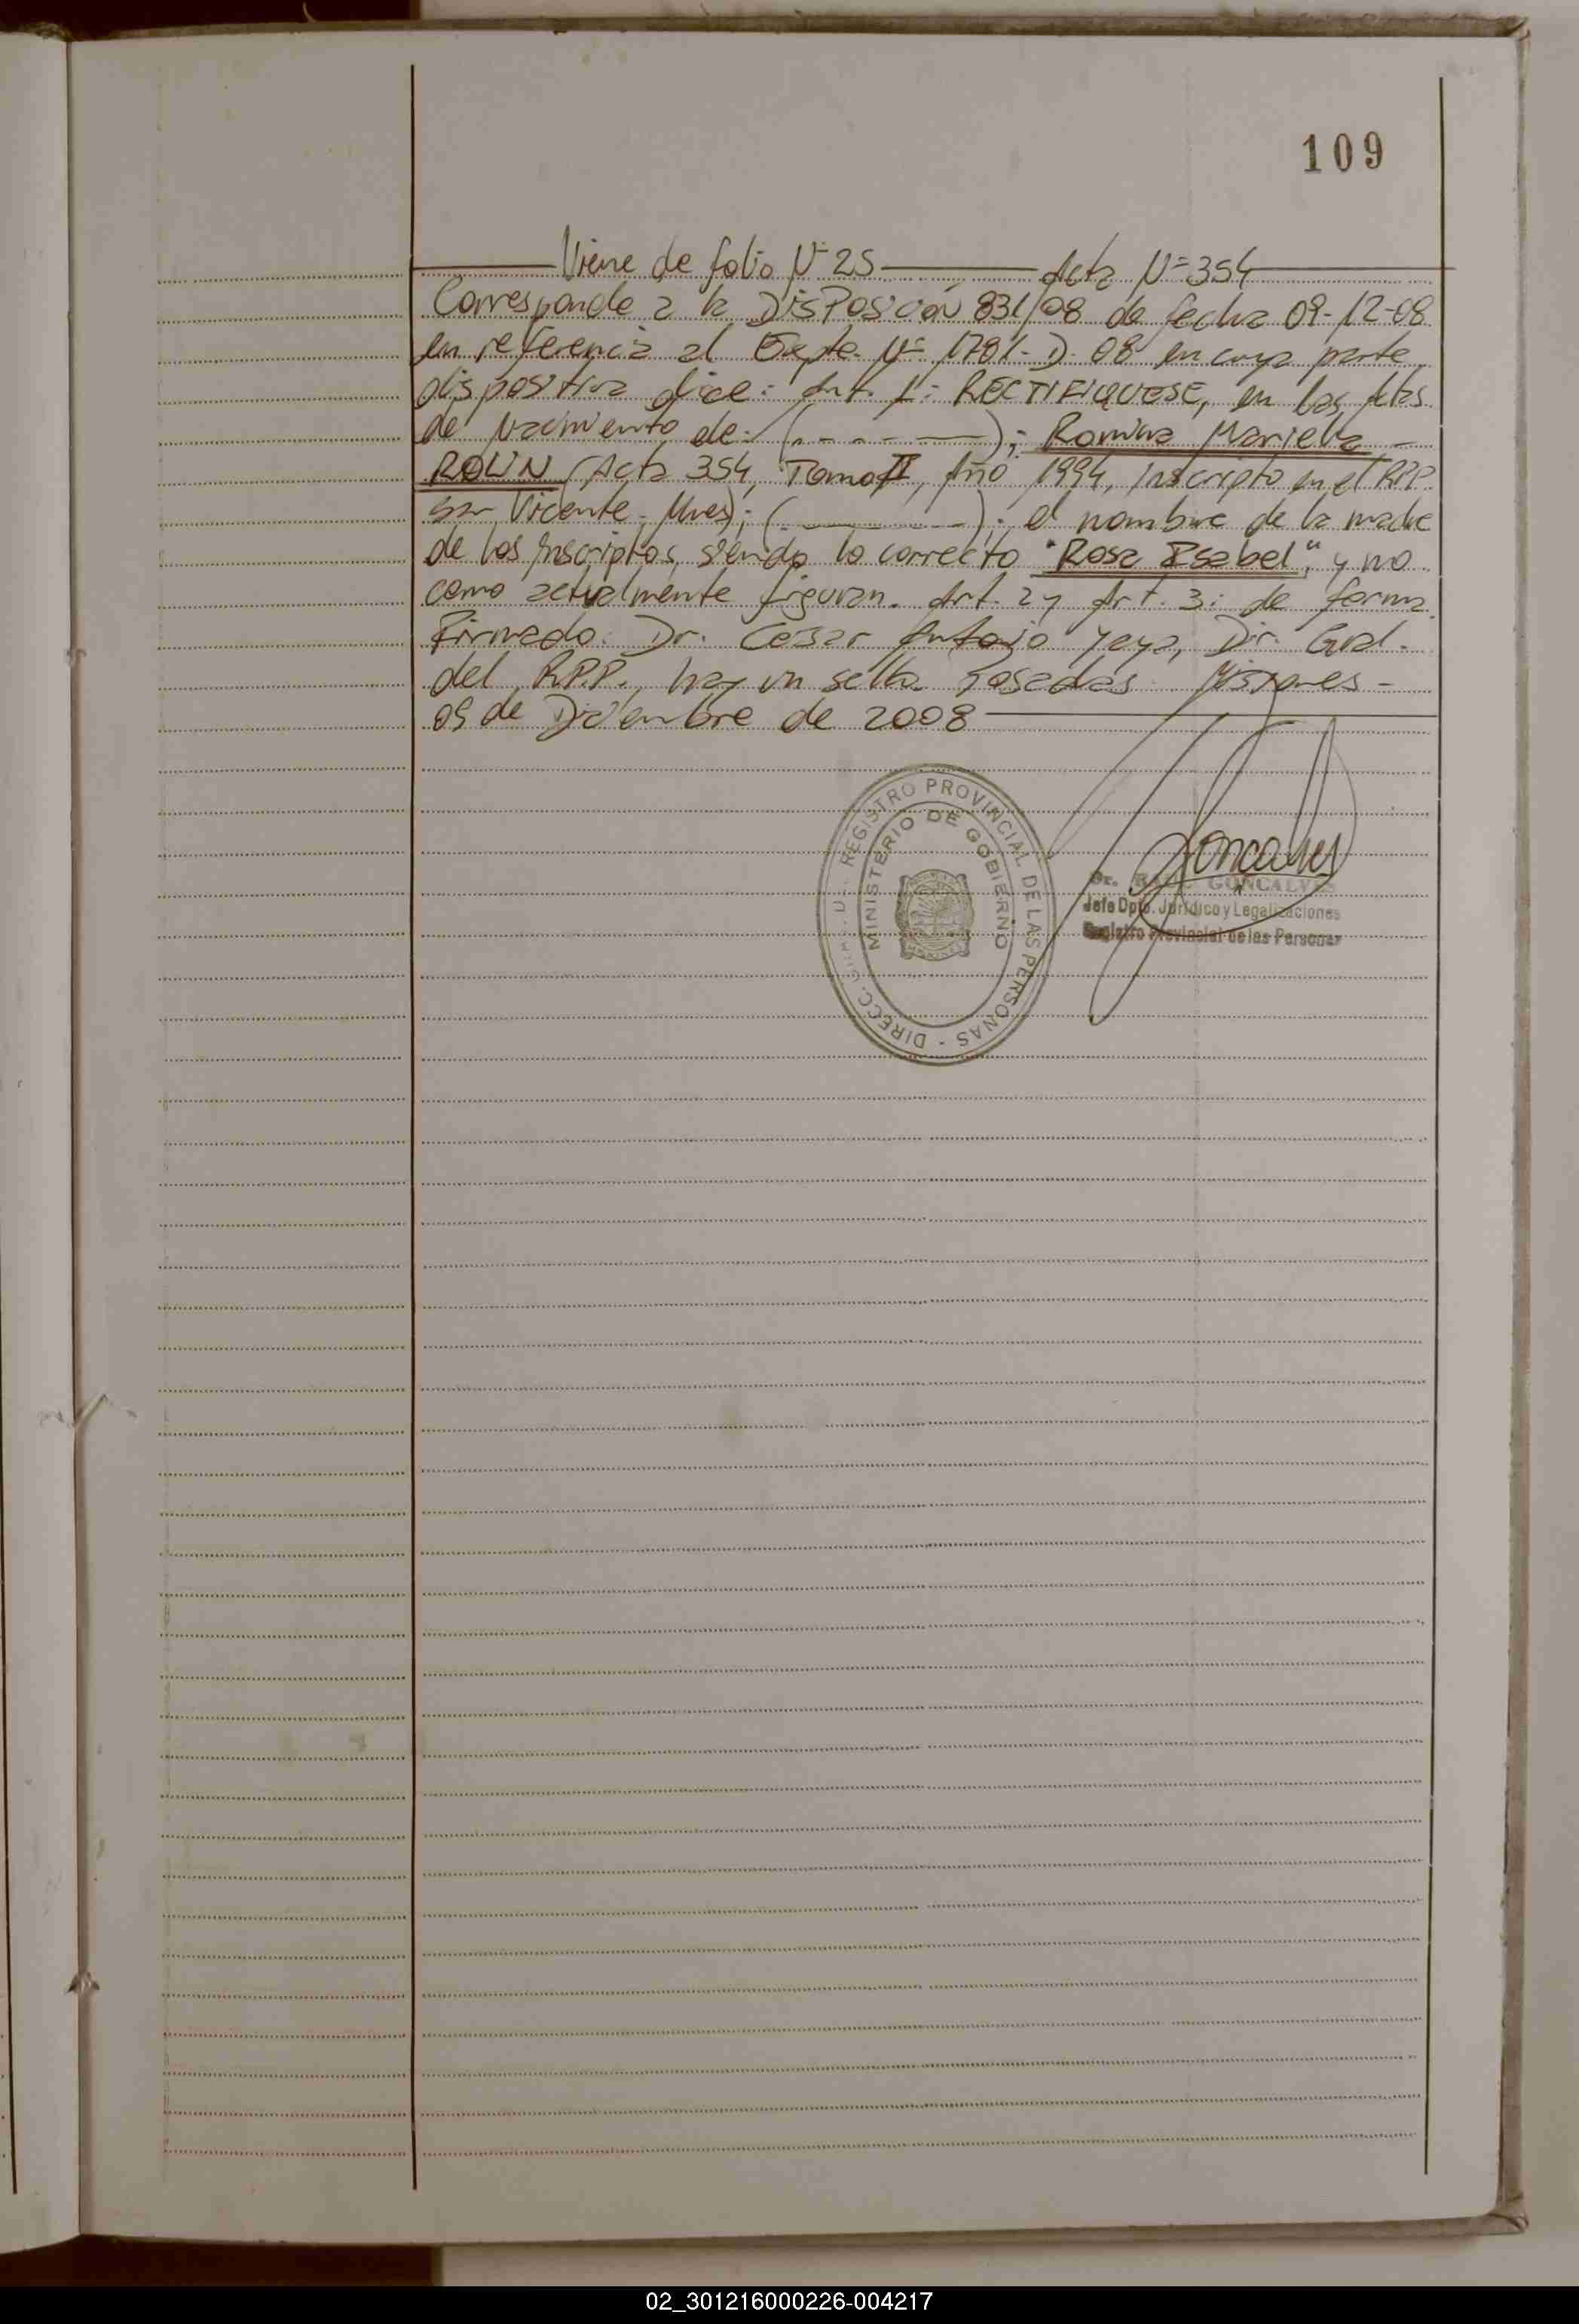 109
Viene de folio Nº 25 Acta Nº 354
Corresponde a la DisPosición 831/08 de fecha 09-12-08
en referencia al Expte. Nº 1781-D-08 en cuya parte
dispositiva dice: Art. 1: RECTIFIQUESE, en las Actas
de Nacimiento de: (- - - - —); Romina Mariela -
ROLIN (Acta 354, Tomo II, Año 1994, Inscripto en el RPP.
San Vicente, Mnes); (———); el nombre de la madre
de los Inscriptos, siendo lo correcto "Rosa Isabel", y no
como actualmente figuran. Art. 2 y Art. 3: de forma
Firmado: Dr. Cesar Antonio Yaya, Dir. Gral.
del R.P.P., hay un sello Posadas Misiones -
09 de Diciembre de 2008
DIRECC. GRAL. DEL REGISTRO PROVINCIAL DE LAS PERSONAS -
MINISTERIO DE GOBIERNO
Goncalves
Dr. GONCALVES
Jefe Dpto. Jurídico y Legalizaciones
Registro Provincial de las Personas
02_301216000226-004217